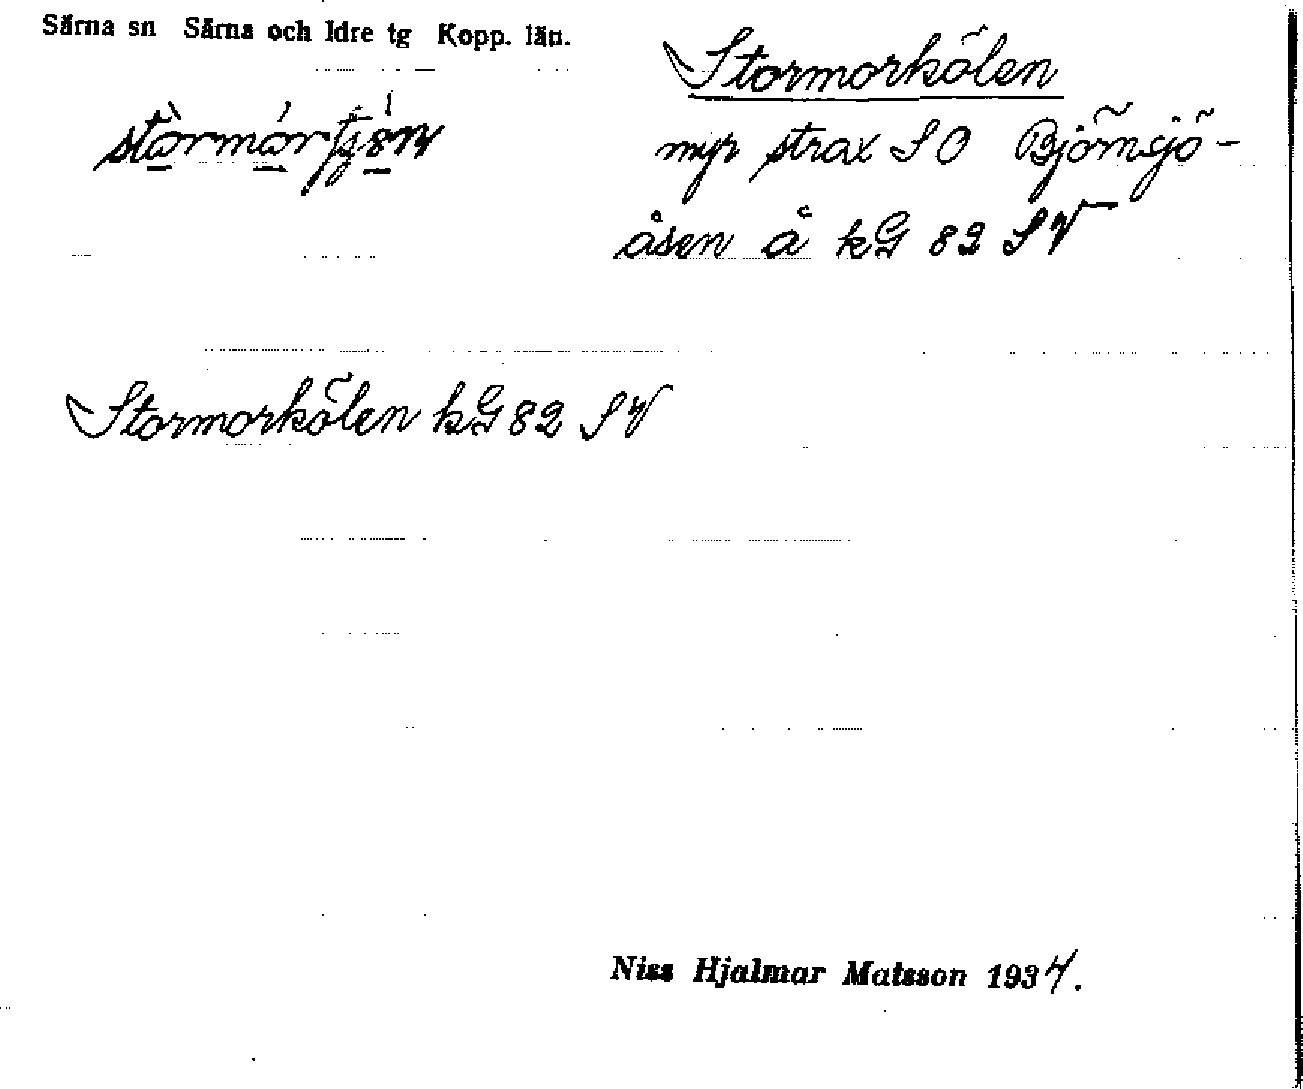 Särna sn Särna och Idre tg Kopp. län.
Stormorkölen
myr strax SO Björnsjö-
åsen å kG 82 SV
Stormorkölen kG 82 SV
Niss Hjalmar Matsson 1934.